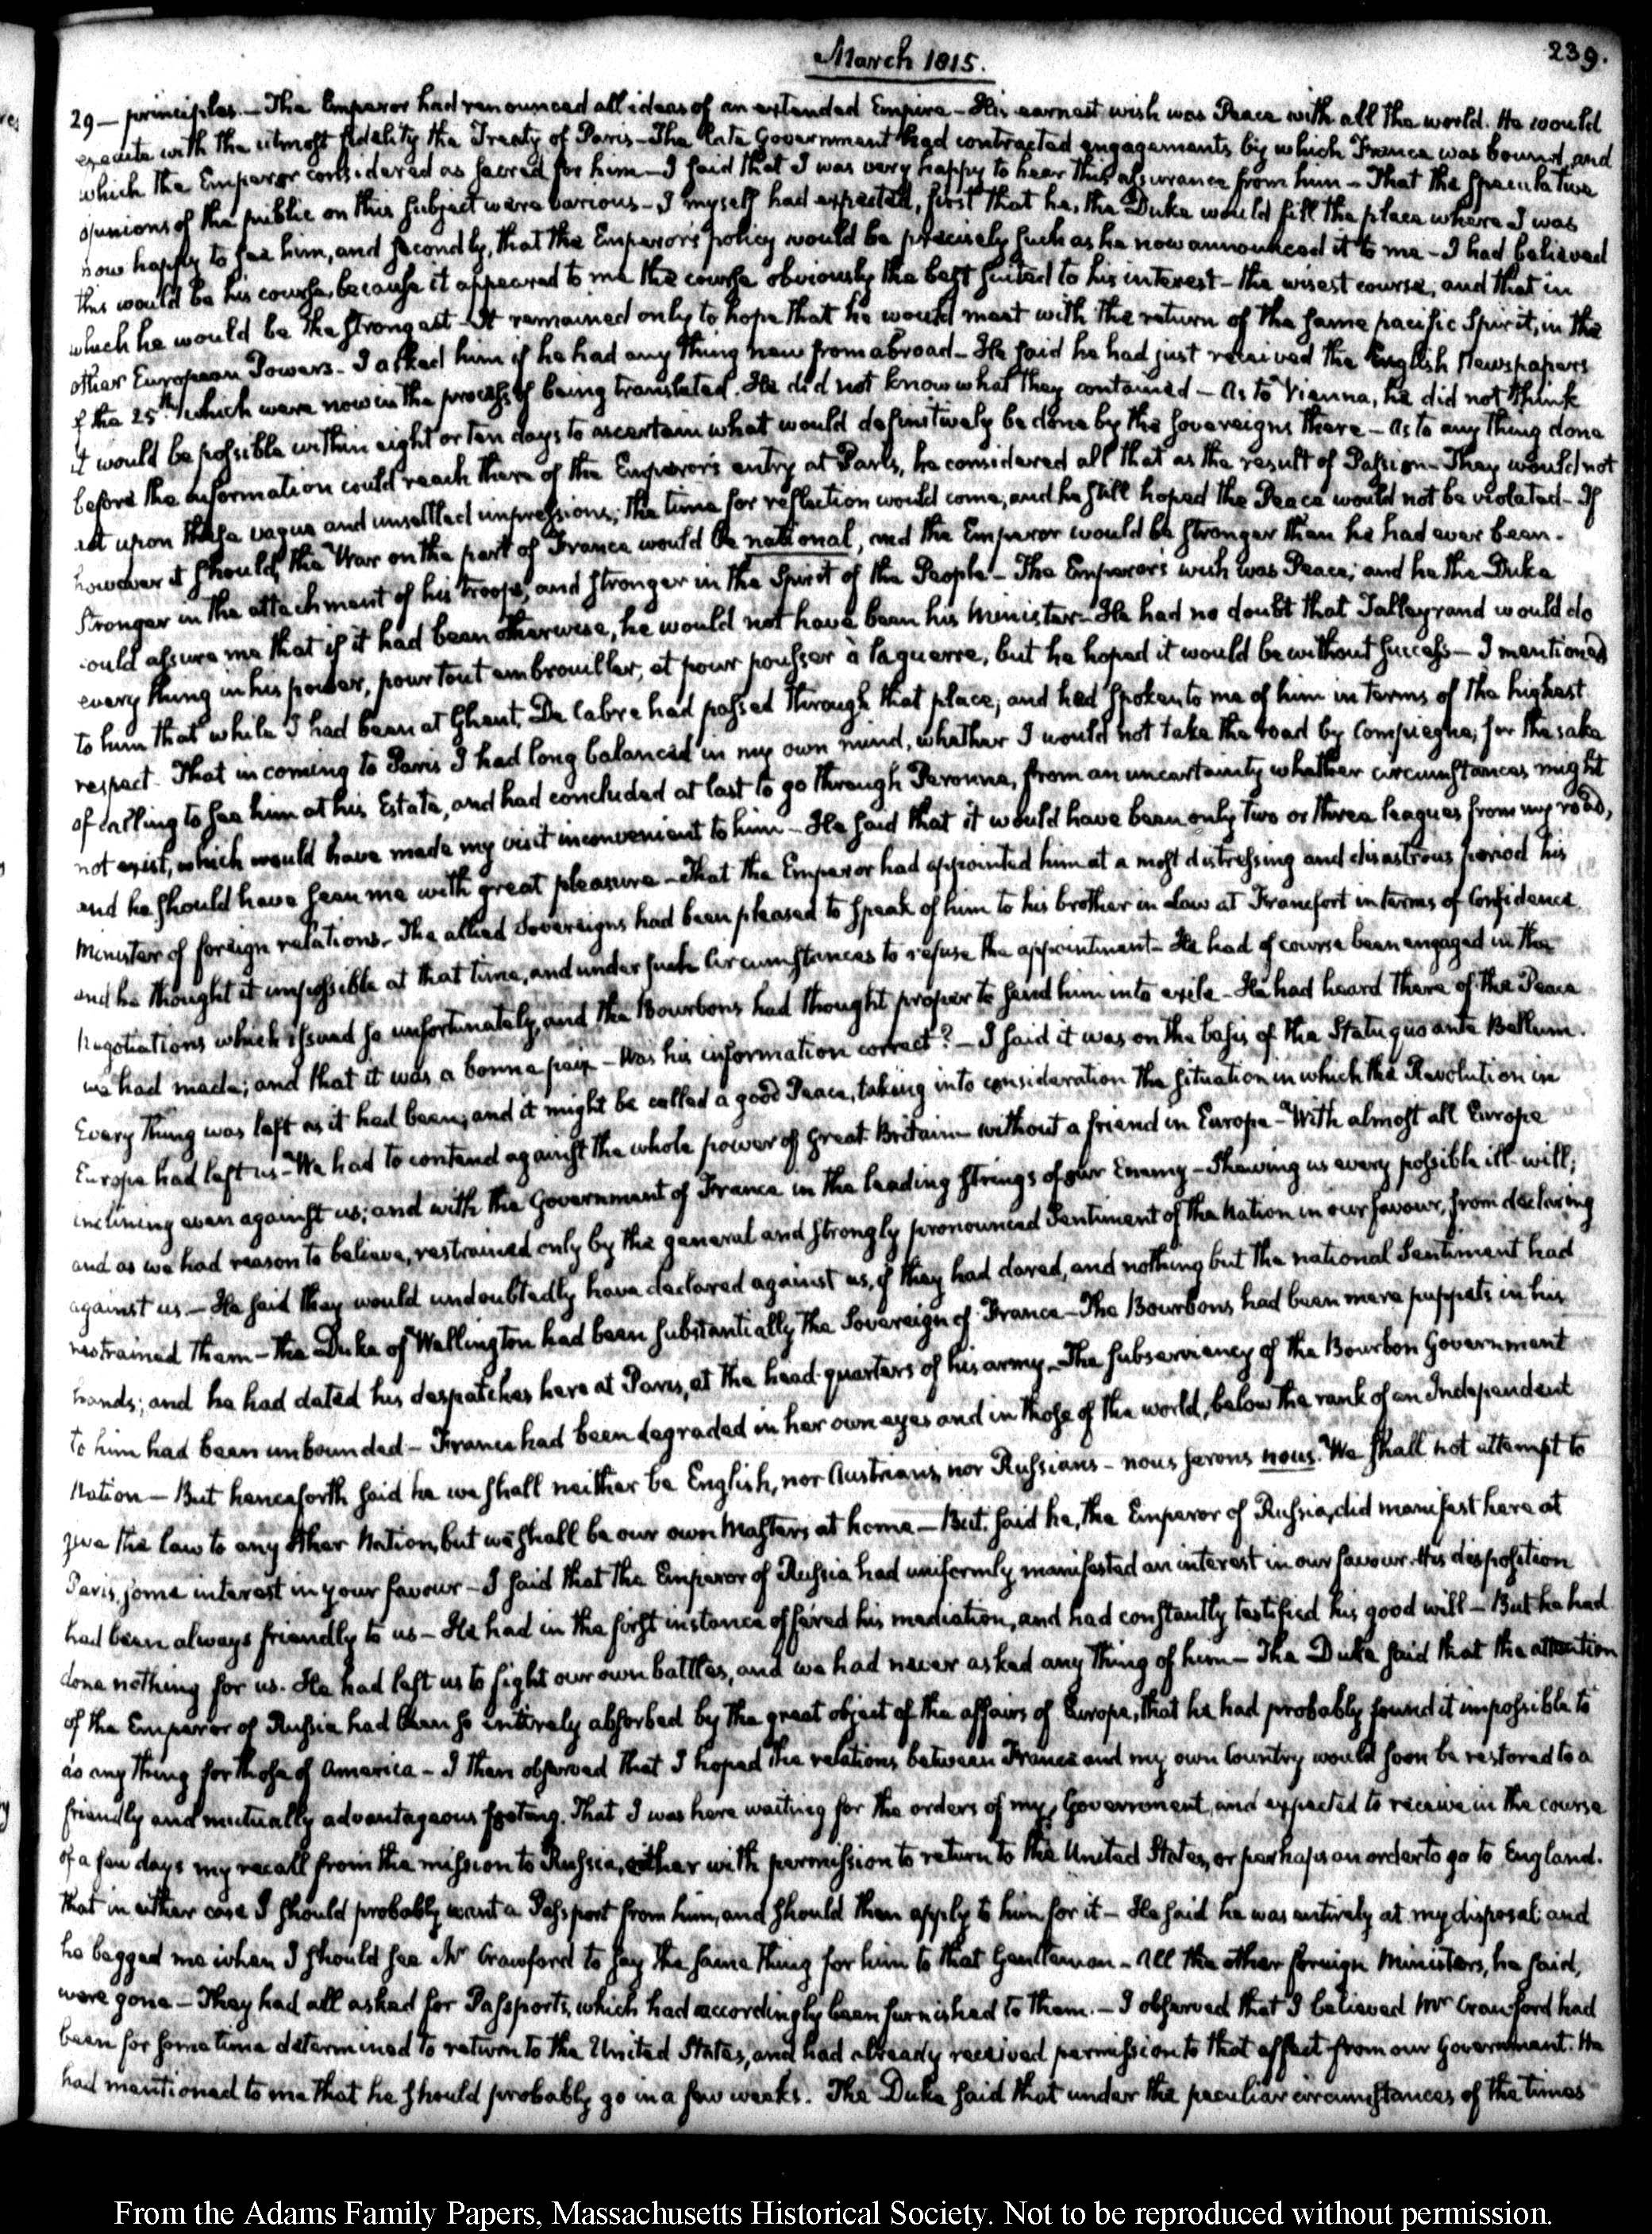 March 1815.
239.
29— principles.— The Emperor had renounced all ideas of an extended Empire— His earnest wish was Peace with all the world. He would
execute with the utmost fidelity the Treaty of Paris— The late Government had contracted engagements by which France was bound, and
which the Emperor considered as sacred for him— I said that I was very happy to hear this assurance from him— That the speculative
opinions of the public on this subject were various— I myself had expected, first that he, the Duke would fill the place where I was
now happy to see him, and secondly, that the Emperor's policy would be precisely such as he now announced it to me— I had believed
this would be his course, because it appeared to me the course obviously the best suited to his interest— the wisest course, and that in
which he would be the strongest— It remained only to hope that he would meet with the return of the same pacific Spirit, in the
other European Powers— I asked him if he had any thing new from abroad— He said he had just received the English Newspapers
of the 25th. which were now in the process of being translated. He did not know what they contained— As to Vienna, he did not think
it would be possible within eight or ten days to ascertain what would definitively be done by the Sovereigns there— As to any thing done
before the information could reach there of the Emperor's entry at Paris, he considered all that as the result of Passion— They would not
act upon these vague and unsettled impressions; the time for reflection would come, and he still hoped the Peace would not be violated— If
however it should, the War on the part of France would be national, and the Emperor would be stronger than he had ever been.
Stronger in the attachment of his troops, and stronger in the Spirit of the People— The Emperor's wish was Peace; and he the Duke
could assure me that if it had been otherwise, he would not have been his Minister— He had no doubt that Talleyrand would do
every thing in his power, pour tout embrouiller, et pour pousser à la guerre, but he hoped it would be without success— I mentioned
to him that while I had been at Ghent, De Cabre had passed through that place, and had spoken to me of him in terms of the highest
respect. That in coming to Paris I had long balanced in my own mind, whether I would not take the road by Compiegne, for the sake
of calling to see him at his Estate, and had concluded at last to go through Peronne, from an uncertainty whether circumstances might
not exist, which would have made my visit inconvenient to him— He said that it would have been only two or three leagues from my road,
and he should have seen me with great pleasure— That the Emperor had appointed him at a most distressing and disastrous period his
Minister of foreign relations— The allied Sovereigns had been pleased to speak of him to his brother in Law at Francfort in terms of Confidence
and he thought it impossible at that time, and under such circumstances to refuse the appointment— He had of course been engaged in the
negotiations which issued so unfortunately, and the Bourbons had thought proper to send him into exile— He had heard there of the Peace
we had made; and that it was a bonne paix— Was his information correct?— I said it was on the basis of the Status quo ante Bellum.
Every thing was left as it had been, and it might be called a good Peace, taking into consideration the situation in which the Revolution in
Europe had left us— We had to contend against the whole power of Great Britain— without a friend in Europe— With almost all Europe
inclining even against us; and with the Government of France in the leading strings of our Enemy— Shewing us every possible ill-will;
and as we had reason to believe, restrained only by the general and strongly pronounced Sentiment of the Nation in our favour, from declaring
against us.— He said they would undoubtedly have declared against us, if they had dared, and nothing but the national Sentiment had
restrained them— The Duke of Wellington had been substantially the Sovereign of France— The Bourbons had been mere puppets in his
hands; and he had dated his despatches here at Paris, at the head-quarters of his army— The subserviency of the Bourbon Government
to him had been unbounded— France had been degraded in her own eyes and in those of the world, below the rank of an Independent
Nation— But henceforth said he we shall neither be English, nor Austrians, nor Russians— nous serons nous. We shall not attempt to
give the law to any other Nation, but we shall be our own Masters at home— But, said he, the Emperor of Russia, did manifest here at
Paris, some interest in your favour— I said that the Emperor of Russia had uniformly manifested an interest in our favour. His disposition
had been always friendly to us— He had in the first instance offered his mediation, and had constantly testified his good will— But he had
done nothing for us. He had left us to fight our own battles, and we had never asked any thing of him— The Duke said that the attention
of the Emperor of Russia had been so entirely absorbed by the great object of the affairs of Europe, that he had probably found it impossible to
do any thing for those of America— I then observed that I hoped the relations between France and my own Country would soon be restored to a
friendly and mutually advantageous footing. That I was here waiting for the orders of my Government, and expected to receive in the course
of a few days my recall from the mission to Russia, either with permission to return to the United States, or perhaps an order to go to England.
that in either case I should probably want a Passport from him, and should then apply to him for it— He said he was entirely at my disposal and
he begged me when I should see Mr Crawford to say the same thing for him to that Gentleman— All the other foreign Ministers, he said,
were gone— They had all asked for Passports, which had accordingly been furnished to them.— I observed that I believed Mr Crawford had
been for some time determined to return to the United States, and had already received permission to that effect from our Government. He
had mentioned to me that he should probably go in a few weeks. The Duke said that under the peculiar circumstances of the times
From the Adams Family Papers, Massachusetts Historical Society. Not to be reproduced without permission.